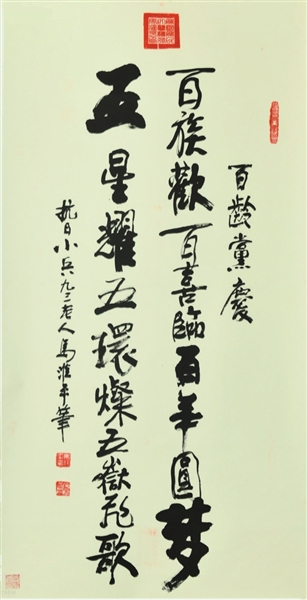 百齡黨慶
百族歡百喜臨百年圓梦
五星耀五環燦五嶽飛歌
抗日小兵九二老人馬淮平筆